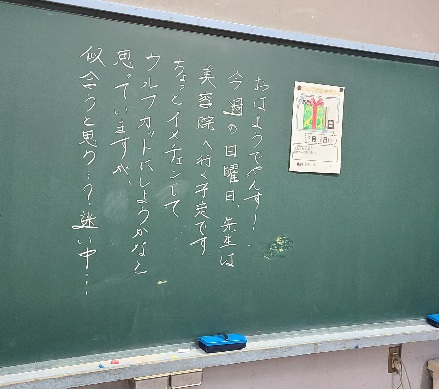 おはようでやんす!
今週の日曜日、先生は
美容院へ行く予定です
ちょっとイメチェンして
ウルフカットにしようかなと
思っていますが、
似合うと思う…?迷い中…
日